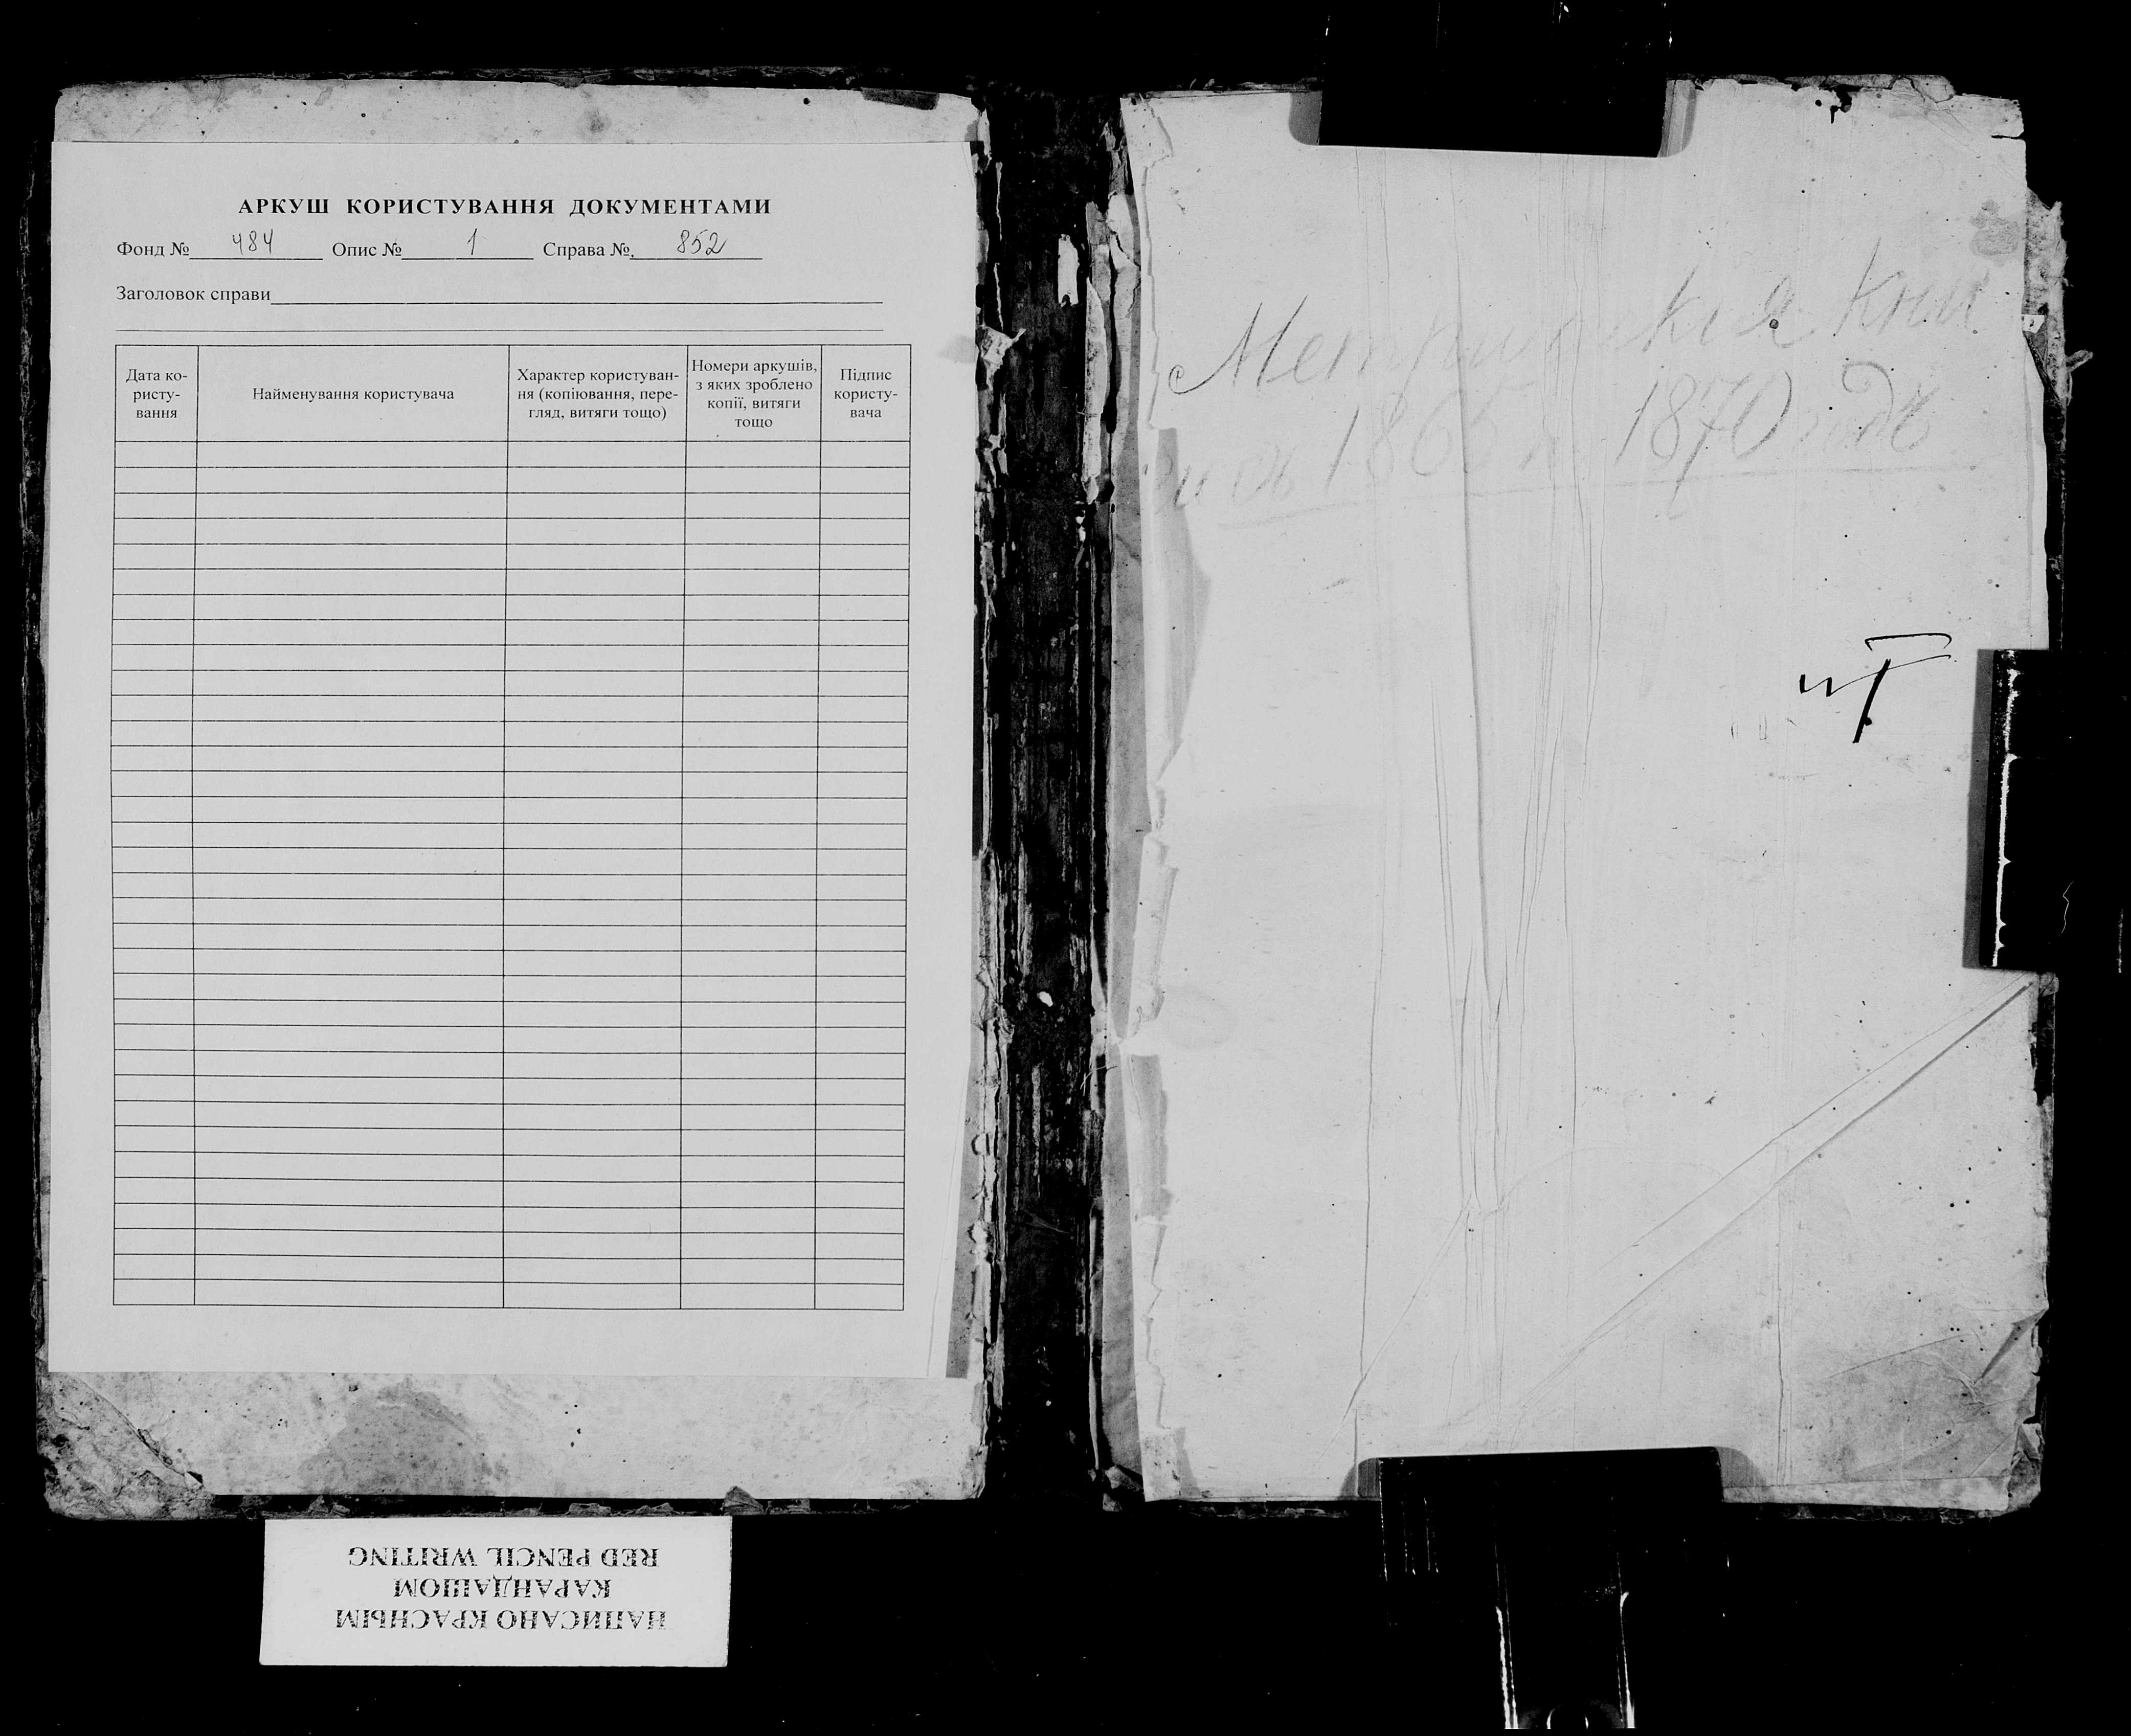 АРКУШ КОРИСТУВАННЯ ДОКУМЕНТАМИ
Фонд № 484 Опис № 1 Справа №. 852
Заголовок справи
Дата ко-
ристу-
вання
Найменування користувача
Характер користуван-
ня (копіювання, пере-
гляд, витяги тощо)
Номери аркушів,
з яких зроблено
копії, витяги
тощо
Підпис
користу-
вача
НАПИСАНО КРАСНЫМ
КАРАНДАШОМ
RED PENCIL WRITING
Метрическія кни
1865 1870 годъ